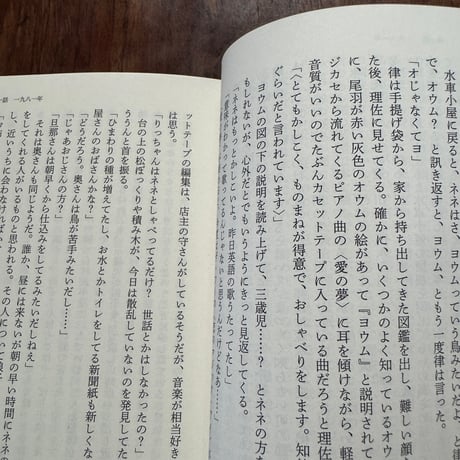 水車小屋に戻ると、ネネはさ、ヨウムっていう鳥みたいだよ、
で、オウム？ と訊き返すと、ヨウム、ともう一度律は言った。
「オじゃなくてヨ」
律は手提げ袋から、家から持ち出してきた図鑑を出し、難しい顔を
た後、理佐に見せてくる。確かに、いくつかのよく知っているオウ
に、尾羽が赤い灰色のオウムの絵があって『ヨウム』と説明されて
ジカセから流れてくるピアノ曲の〈愛の夢〉に耳を傾けながら、軽
音質がいいのでたぶんカセットテープに入っている曲だろうと理佐
〈とてもかしこく、ものまねが得意で、おしゃべりをします。知
ぐらいだと言われています〉
ヨウムの図の下の説明を読み上げて、三歳児……？ とネネの方を
もしれないが、心外だとでもいうようにきっと見返してくる。
「ネネはもっとかしこいよ。昨日英語の歌うたってたし」
一話 一九八一年
ットテープの編集は、店主の守さんがしているそうだが、音楽が相当好き
は思う。
「りっちゃんはネネとしゃべってるだけ？ 世話とかはしなかったの？」
台の上の松ぼっくりや積み木が、今日は散乱していないのを発見してた
ううんと首を振る。
「ひまわりの種が増えてたし、お水とかトイレをしてる新聞紙も新しくな
屋さんのおばさんかな？」
「どうだろう。奥さんは鳥が苦手みたいだし……」
「じゃあおじさんの方？」
「旦那さんは朝早くから仕込みをしてるみたいだしねえ」
それは奥さんも同じようだ。誰か、昼には来ないが朝の早い時間にネネの
をしてくれる人がいるものと思われる。その人について浪子